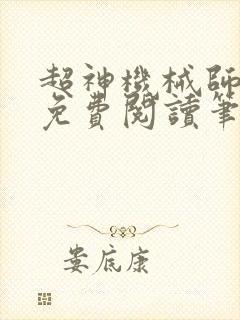 超神機械師
免費閱讀筆
婁底康